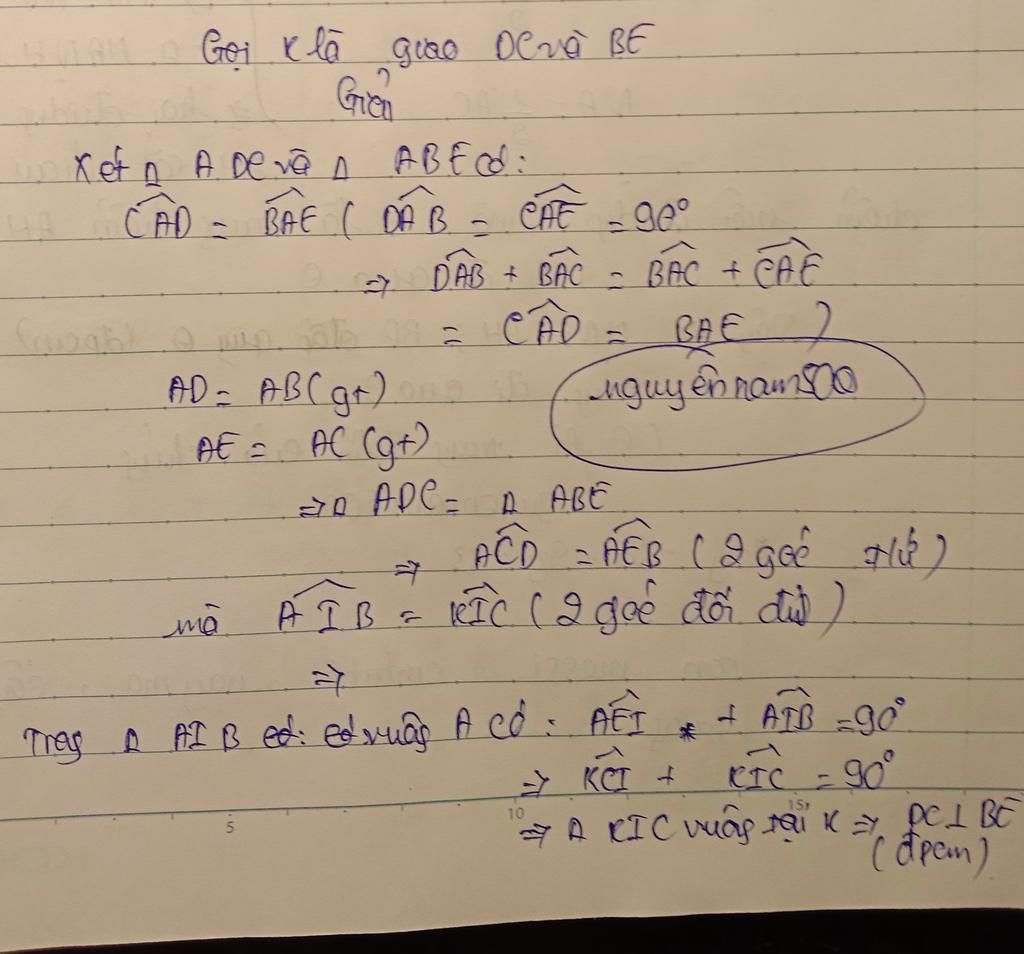 Gọi K là giao DC và BE
Giải
Xét Δ ADC và Δ ABE có:
CAD = BAE ( DAB = CAE = 90°
⇒ DAB + BAC = BAC + CAE
= CAD = BAE )
AD = AB (gt)
nguyễn nam 500
AE = AC (gt)
⇒ Δ ADC = Δ ABE
⇒ ACD = AEB ( 2 góc )
mà AIB = KIC ( 2 góc đối đỉnh )
⇒
Trong Δ AIB có: có vuông A có: AEI + AIB = 90°
⇒ KCI + KIC = 90°
⇒ Δ KIC vuông tại K ⇒ DC ⊥ BE
(đpcm)
5 10 15